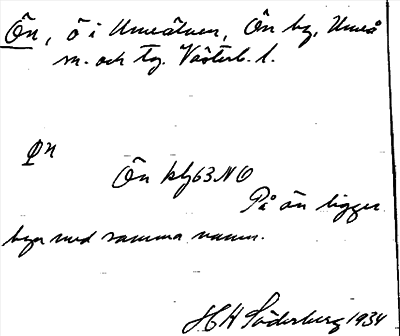 Ön, ö i Umeälven, Ön by, Umeå
sn. och tg. Västerb. l.
Ön kbl 63 NO
På ön ligger
byn med samma namn.
H Söderberg 1934